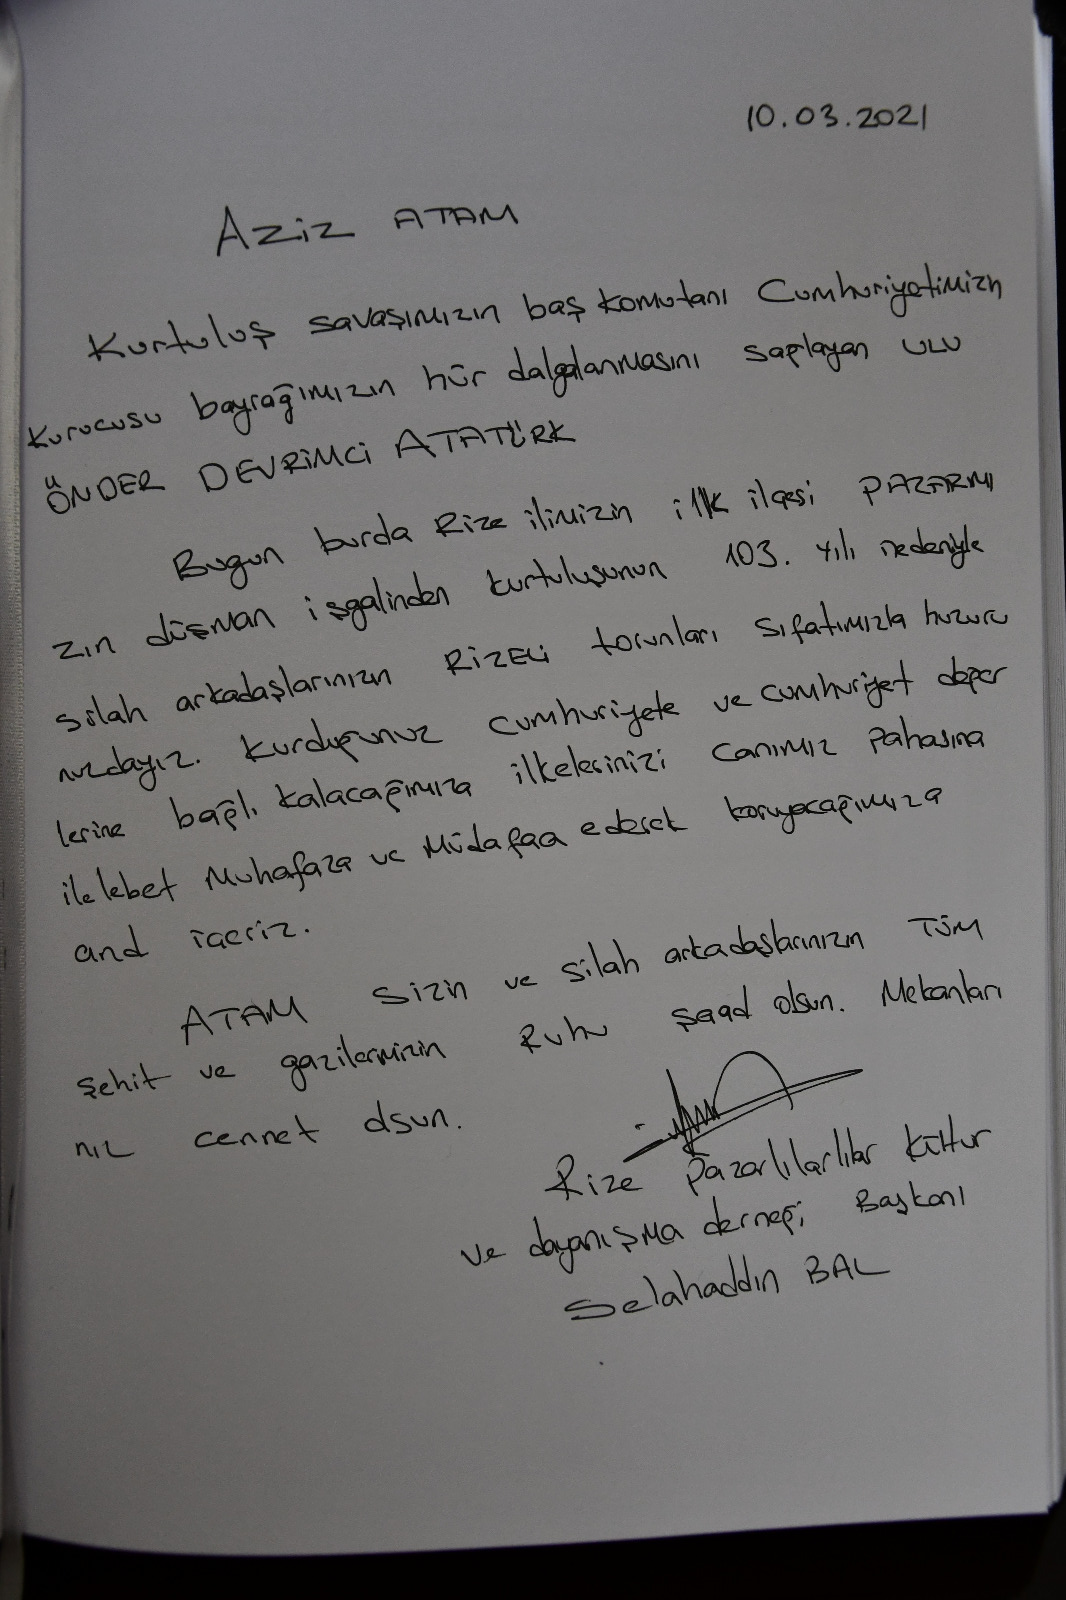 10.03.2021
Aziz ATAM
Kurtuluş savaşımızın baş komutanı Cumhuriyetimizin
kurucusu bayrağımızın hür dalgalanmasını saplayan ULU
ÖNDER DEVRİMCİ ATATÜRK
Bugun burda Rize ilimizin ilk ilçesi PAZARIMI
zın düşman işgalinden kurtuluşunun 103. yılı nedeniyle
silah arkadaşlarınızın RİZELİ torunları sıfatımızla huzuru
nuzdayız. Kurduğunuz cumhuriyete ve cumhuriyet değer
lerine bağlı kalacağımıza ilkelerinizi canımız pahasına
ilelebet Muhafaza ve Müdafaa ederek koruyacağımıza
and içeriz.
ATAM sizin ve silah arkadaşlarınızın TÜM
şehit ve gazilerimizin Ruhu şaad olsun. Mekanları
nız cennet olsun.
Rize Pazarlılarlılar Kültür
ve dayanışma derneği Başkanı
Selahaddin BAL